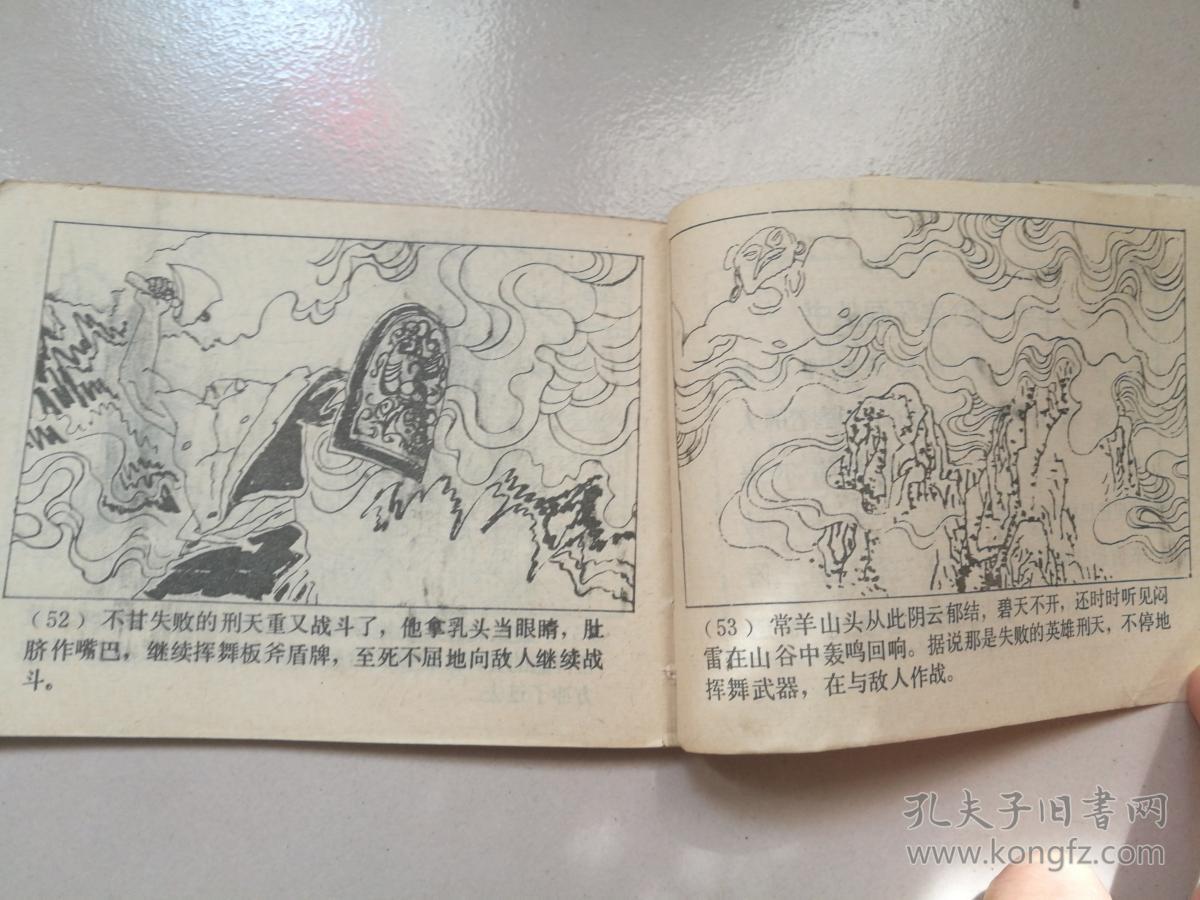 (52) 不甘失败的刑天重又战斗了，他拿乳头当眼睛，肚
脐作嘴巴，继续挥舞板斧盾牌，至死不屈地向敌人继续战
斗。
(53) 常羊山头从此阴云郁结，碧天不开，还时时听见闷
雷在山谷中轰鸣回响。据说那是失败的英雄刑天，不停地
挥舞武器，在与敌人作战。
孔夫子旧書网
www.kongfz.com